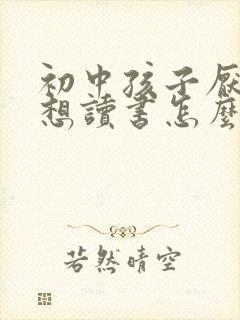 初中孩子厭
想讀書怎麼
若然晴空